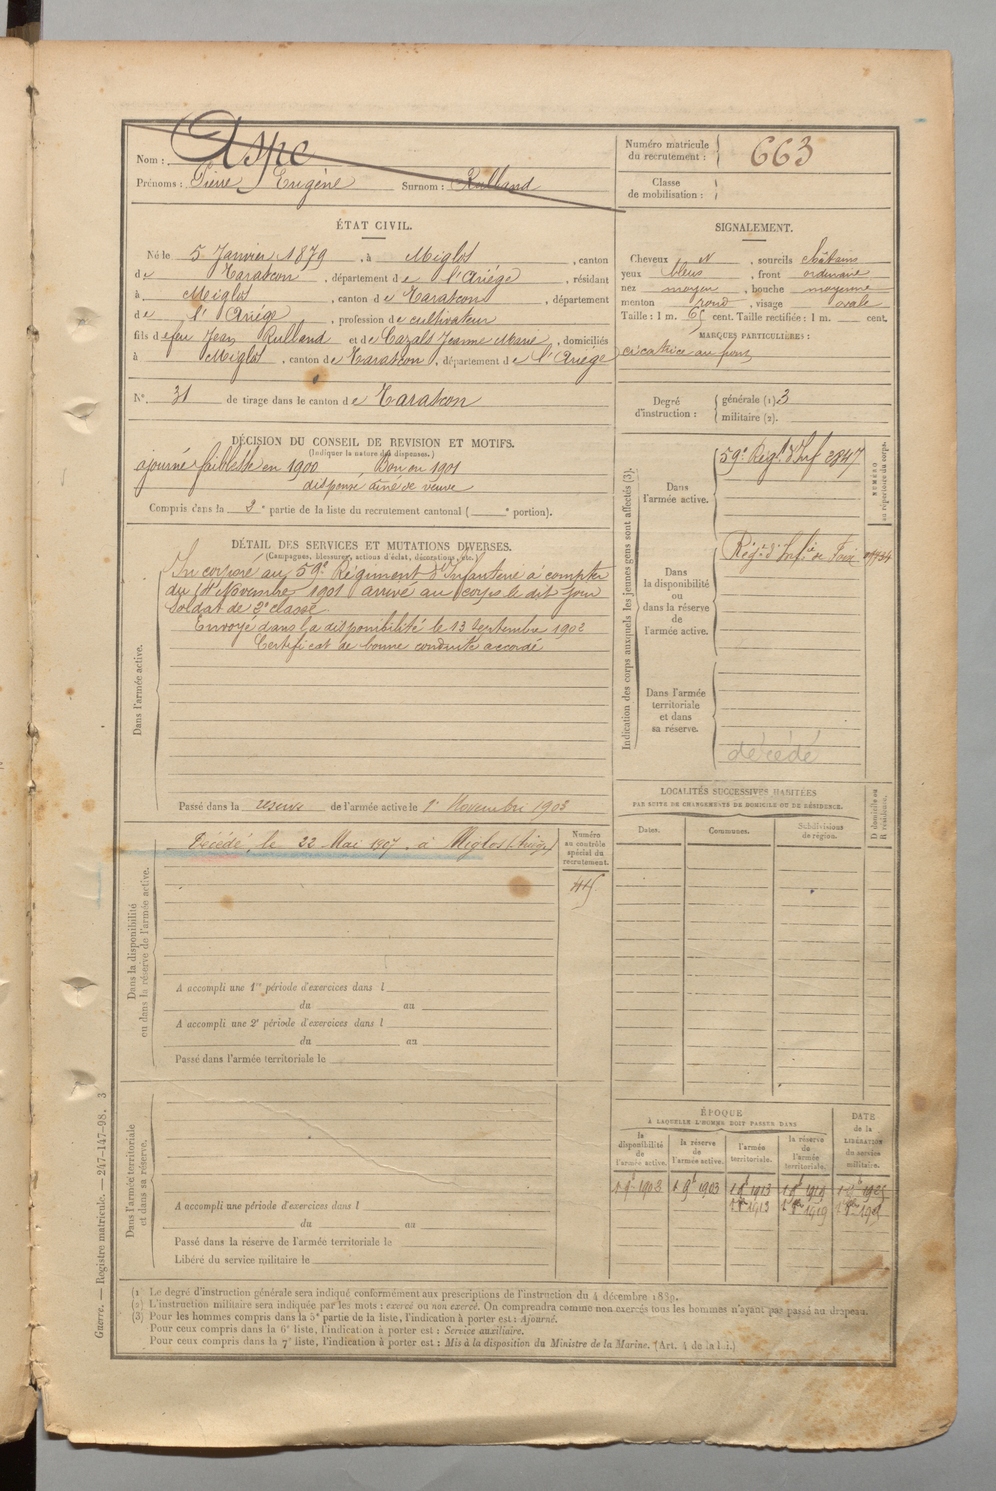 Nom : Aspe
Prénoms : Pierre Eugène Surnom : Rulland
Numéro matricule du recrutement : 663
Classe de mobilisation :
ÉTAT CIVIL.
Né le 5 Janvier 1879, à Miglos, canton
de Tarascon, département de l'Ariége, résidant
à Miglos, canton de Tarascon, département
de l'Ariége, profession de cultivateur
fils de feu Jean Rulland et de Cazals Jeanne Marie, domiciliés
à Miglos, canton de Tarascon, département de l'Ariége
N° 31 de tirage dans le canton de Tarascon
SIGNALEMENT.
Cheveux N, sourcils châtains
yeux bleus, front ordinaire
nez moyen, bouche moyenne
menton rond, visage ovale
Taille : 1 m. 65 cent. Taille rectifiée : 1 m. cent.
MARQUES PARTICULIÈRES :
cicatrice au front
Degré d'instruction : générale (1) 3
militaire (2).
DÉCISION DU CONSEIL DE REVISION ET MOTIFS.
(Indiquer la nature des dispenses.)
ajourné faiblesse en 1900 Bon en 1901
dispensé aîné de veuve
Compris dans la 2e partie de la liste du recrutement cantonal ( e portion).
DÉTAIL DES SERVICES ET MUTATIONS DIVERSES.
(Campagnes, blessures, actions d'éclat, décorations, etc.)
Dans l'armée active.
Incorporé au 59e Régiment d'Infanterie à compter
du 14 Novembre 1901 arrivé au corps le dit jour
Soldat de 2e classe.
Envoyé dans la disponibilité le 13 septembre 1902
Certificat de bonne conduite accordé
Passé dans la réserve de l'armée active le 1er Novembre 1903
Indication des corps auxquels les jeunes gens sont affectés (3).
NUMÉRO au répertoire du corps.
Dans l'armée active.
59e Régt d'Inf 2847
Dans la disponibilité ou dans la réserve de l'armée active.
Régt d'Infie de Foix
Dans l'armée territoriale et dans sa réserve.
décédé
LOCALITÉS SUCCESSIVES HABITÉES
PAR SUITE DE CHANGEMENTS DE DOMICILE OU DE RÉSIDENCE.
Dates. Communes. Subdivisions de région. D domicile ou R résidence.
Dans la disponibilité ou dans la réserve de l'armée active.
Décédé, le 22 Mai 1907, à Miglos (Ariège)
Numéro au contrôle spécial du recrutement.
A accompli une 1re période d'exercices dans l
du au
A accompli une 2e période d'exercices dans l
du au
Passé dans l'armée territoriale le
Dans l'armée territoriale et dans sa réserve.
A accompli une période d'exercices dans l
du au
Passé dans la réserve de l'armée territoriale le
Libéré du service militaire le
ÉPOQUE
À LAQUELLE L'HOMME DOIT PASSER DANS
la disponibilité de l'armée active.
la réserve de l'armée active.
l'armée territoriale.
la réserve de l'armée territoriale.
DATE de la LIBÉRATION du service militaire.
(1) Le degré d'instruction générale sera indiqué conformément aux prescriptions de l'instruction du 4 décembre 1889.
(2) L'instruction militaire sera indiquée par les mots : exercé ou non exercé. On comprendra comme non exercés tous les hommes n'ayant pas passé au drapeau.
(3) Pour les hommes compris dans la 5e partie de la liste, l'indication à porter est : Ajourné.
Pour ceux compris dans la 6e liste, l'indication à porter est : Service auxiliaire.
Pour ceux compris dans la 7e liste, l'indication à porter est : Mis à la disposition du Ministre de la Marine. (Art. 4 de la loi.)
Guerre. — Registre matricule. — 247-147-98. 3